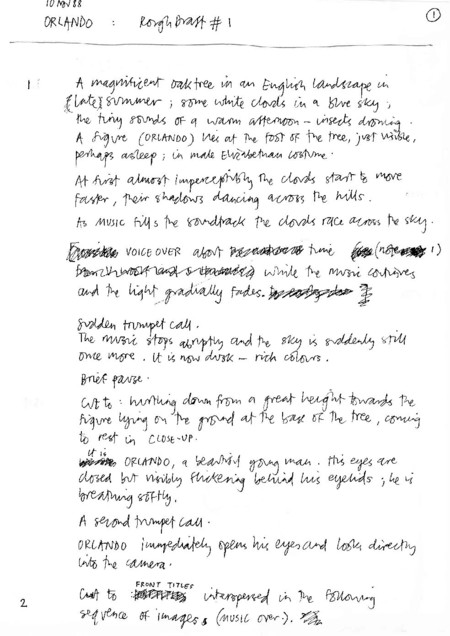 10 NOV 88
ORLANDO : Rough Draft # 1
1
1 A magnificent oak tree in an English landscape in
[late] summer ; some white clouds in a blue sky ;
the tiny sounds of a warm afternoon – insects droning.
A figure (ORLANDO) lies at the foot of the tree, just visible,
perhaps asleep ; in male Elizabethan costume.
At first almost imperceptibly the clouds start to move
faster, their shadows dancing across the hills.
As MUSIC fills the soundtrack the clouds race across the sky.
VOICE OVER about time (note 1)
while the music continues
and the light gradually fades.
Sudden trumpet call.
The music stops abruptly and the sky is suddenly still
once more. It is now dusk – rich colours.
Brief pause.
Cut to : hurtling down from a great height towards the
figure lying on the ground at the base of the tree, coming
to rest in CLOSE-UP.
It is
ORLANDO, a beautiful young man. His eyes are
closed but visibly flickering behind his eyelids ; he is
breathing softly.
A second trumpet call.
ORLANDO immediately opens his eyes and looks directly
into the camera.
FRONT TITLES
2 Cut to interspersed in the following
sequence of images (MUSIC over.).